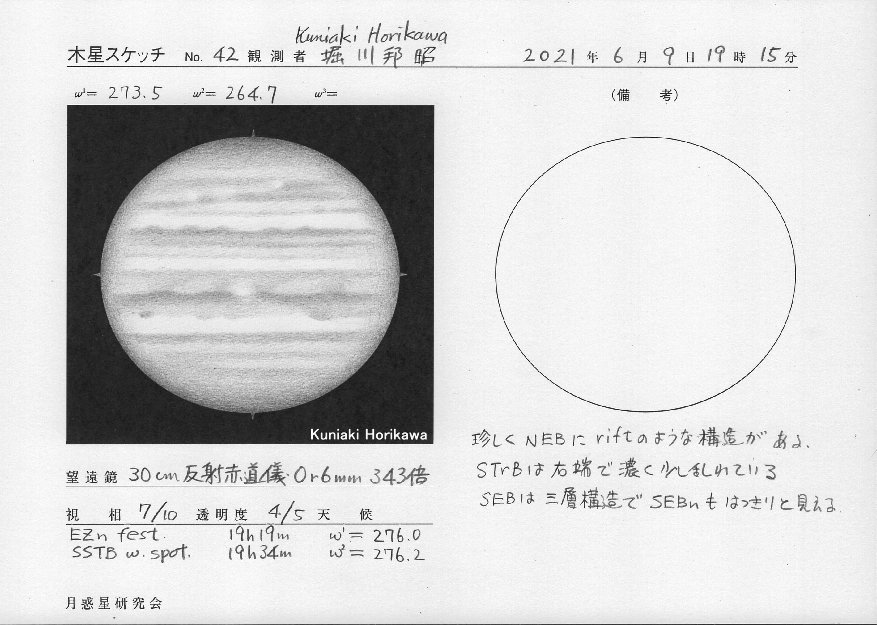 Kuniaki Horikawa
木星スケッチ No. 42 観測者 堀川邦昭 2021年 6月 9日 19時 15分
ω¹= 273.5 ω²= 264.7 ω³=
(備 考)
Kuniaki Horikawa
珍しくNEBにriftのような構造がある.
STrBは右端で濃く少し乱れている
SEBは三層構造でSEBnもはっきりと見える.
望遠鏡 30cm反射赤道儀 Or6mm 343倍
視 相 7/10 透明度 4/5 天 候
EZn fest. 19h19m ω¹= 276.0
SSTB w. spot. 19h34m ω²= 276.2
月惑星研究会